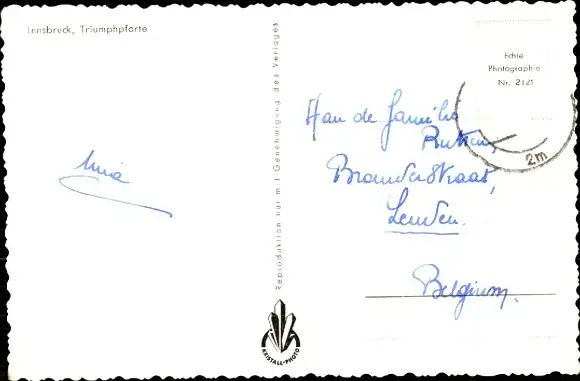 Innsbruck, Triumphpforte
Mia
Reproduktion nur mit Genehmigung des Verlages
KRISTALL-PHOTO
Echte
Photographie
Nr. 2121
2m
Aan de familie
Rutten,
Branderstraat,
Leuden.
Belgium.